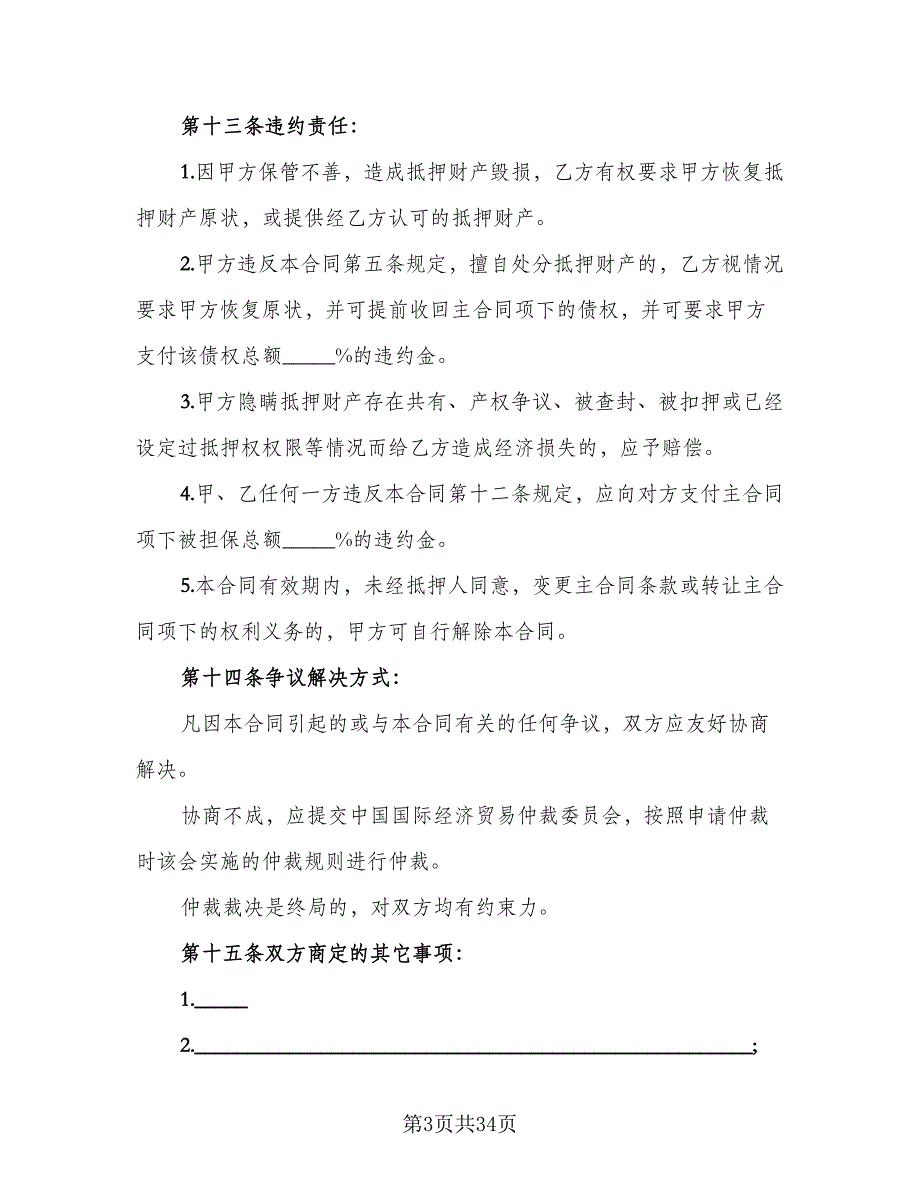 第十三条违约责任：
1.因甲方保管不善，造成抵押财产毁损，乙方有权要求甲方恢复抵
押财产原状，或提供经乙方认可的抵押财产。
2.甲方违反本合同第五条规定，擅自处分抵押财产的，乙方视情况
要求甲方恢复原状，并可提前收回主合同项下的债权，并可要求甲方
支付该债权总额_____%的违约金。
3.甲方隐瞒抵押财产存在共有、产权争议、被查封、被扣押或已经
设定过抵押权权限等情况而给乙方造成经济损失的，应予赔偿。
4.甲、乙任何一方违反本合同第十二条规定，应向对方支付主合同
项下被担保总额_____%的违约金。
5.本合同有效期内，未经抵押人同意，变更主合同条款或转让主合
同项下的权利义务的，甲方可自行解除本合同。
第十四条争议解决方式：
凡因本合同引起的或与本合同有关的任何争议，双方应友好协商
解决。
协商不成，应提交中国国际经济贸易仲裁委员会，按照申请仲裁
时该会实施的仲裁规则进行仲裁。
仲裁裁决是终局的，对双方均有约束力。
第十五条双方商定的其它事项：
1._____
2._____________________________________________________;
第3页共34页